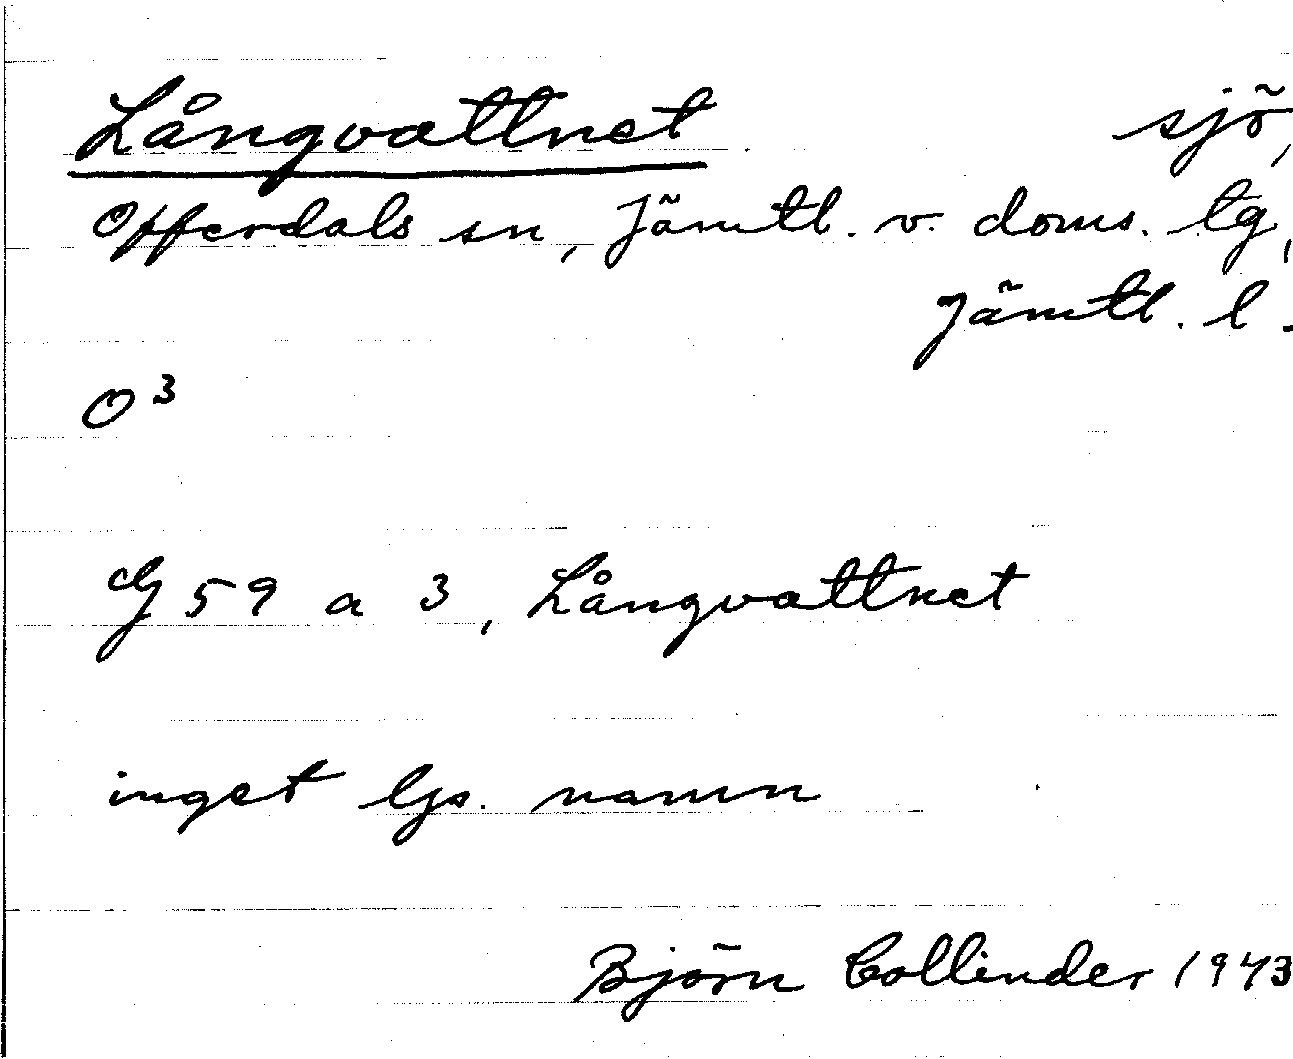 Långvattnet sjö,
Offerdals sn, Jämtl. v. doms. tg,
Jämtl. l.
O³
G 59 a 3, Långvattnet
inget ljs. namn
Björn Collinder 1943